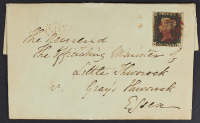 The Reverend
The Officiating Minister of
Little Thurrock
Grays Thurrock
Essex